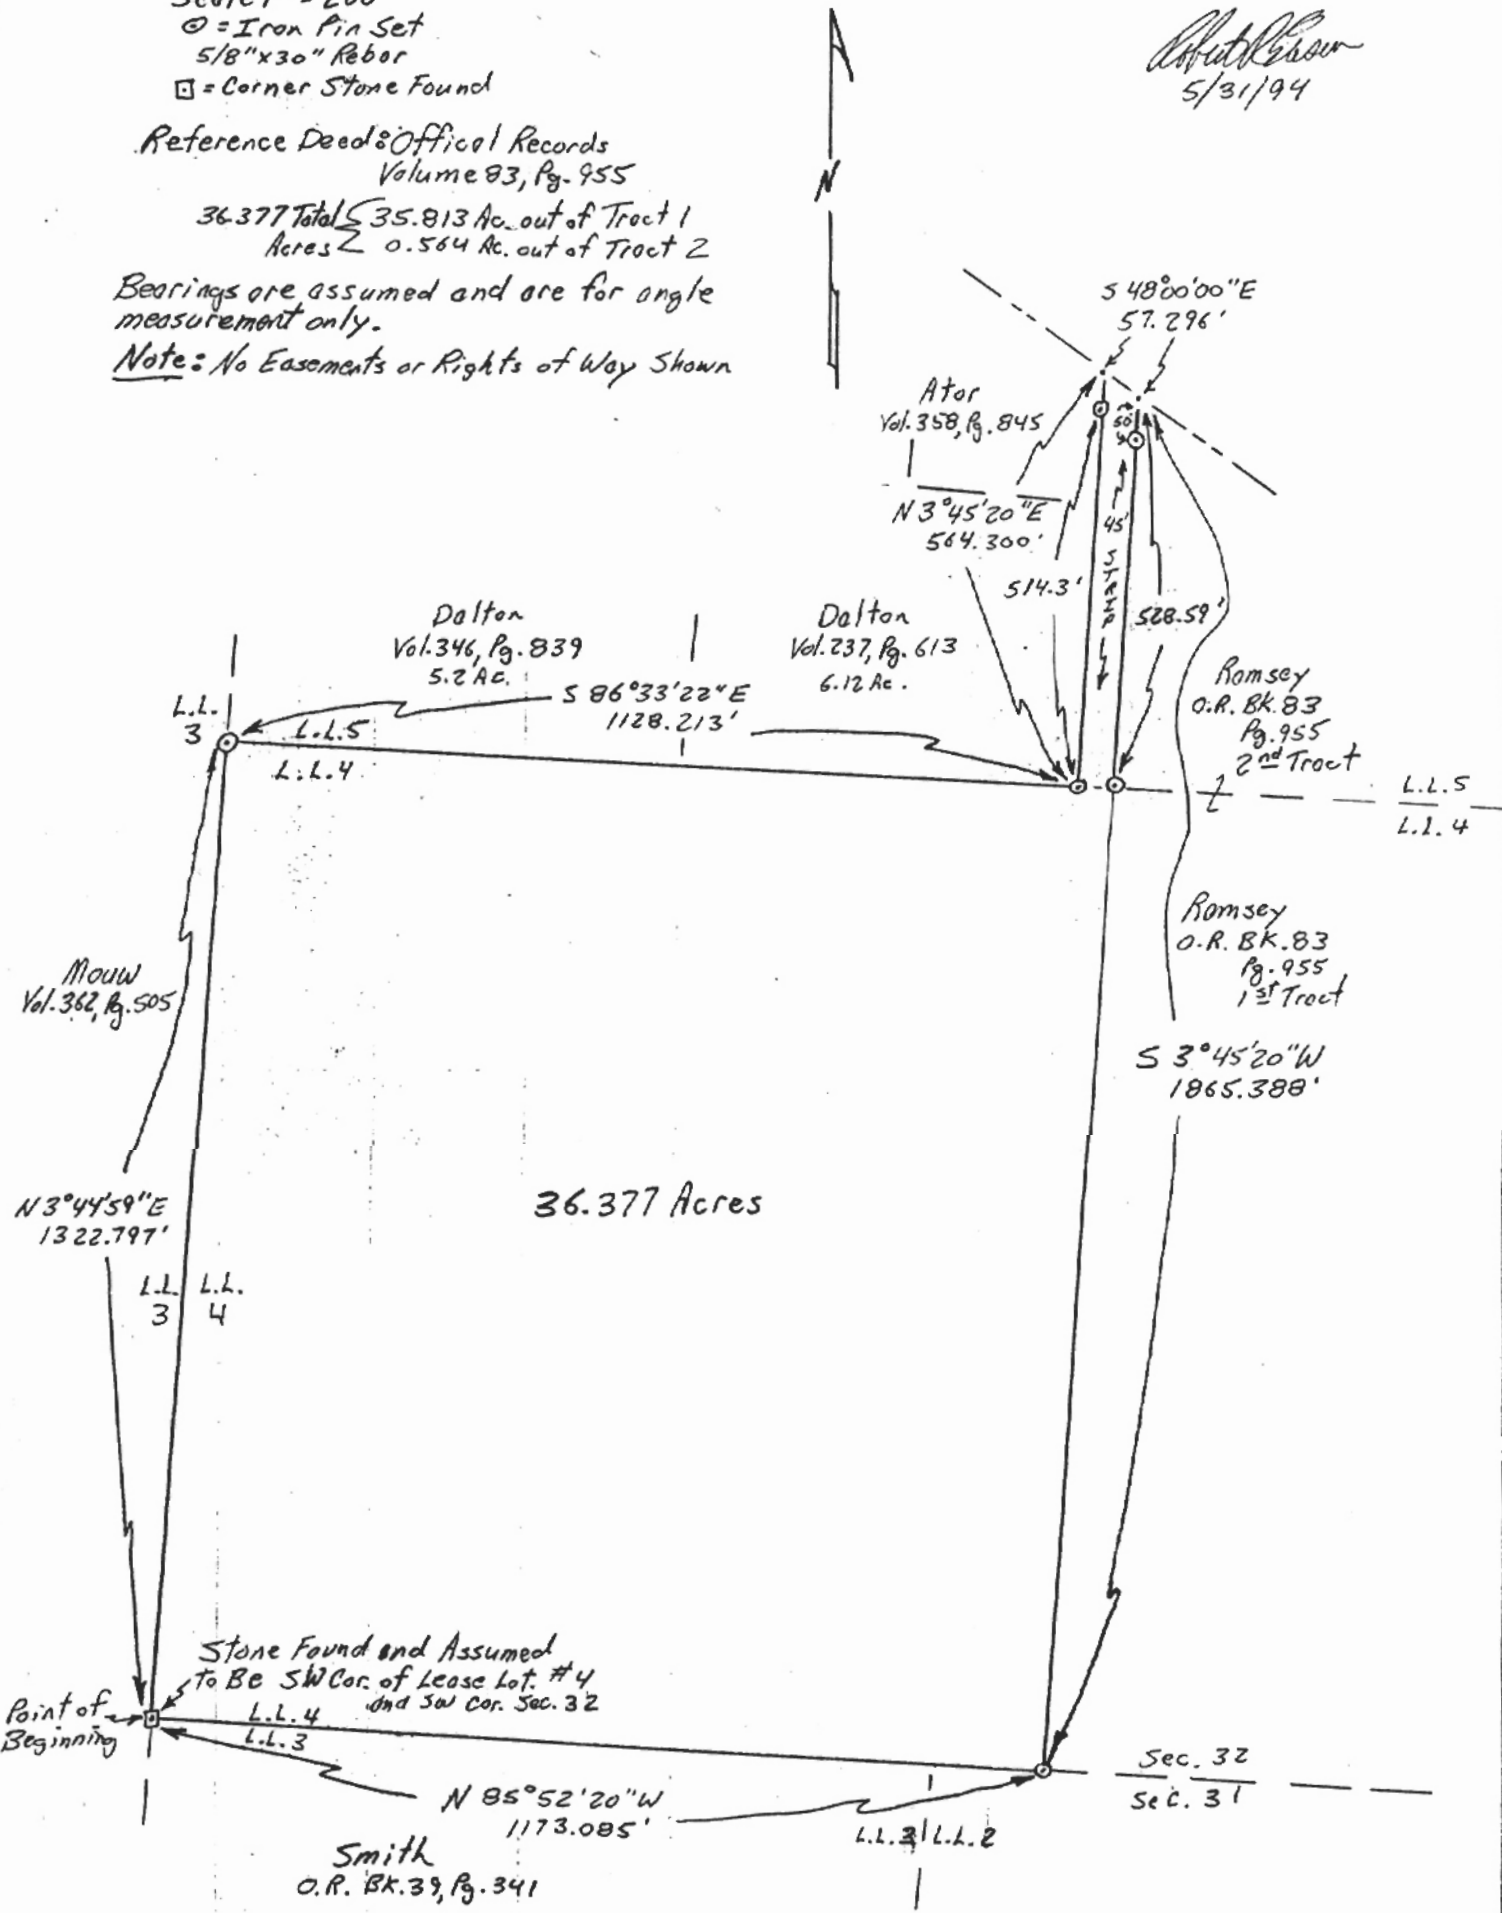 ⊙ = Iron Pin Set
5/8"x30" Rebar
⊡ = Corner Stone Found
Reference Deed: Offical Records
Volume 83, Pg. 955
36.377 Total { 35.813 Ac. out of Tract 1
Acres { 0.564 Ac. out of Tract 2
Bearings are assumed and are for angle
measurement only.
Note: No Easements or Rights of Way Shown
N
5/31/94
S 48°00'00"E
57.296'
Ator
Vol. 358, Pg. 845
50'
N 3°45'20"E
564.300'
45'
STRIP
514.3'
528.59'
Dalton
Vol. 346, Pg. 839
5.2 Ac.
Dalton
Vol. 237, Pg. 613
6.12 Ac.
S 86°33'22"E
1128.213'
Ramsey
O.R. BK. 83
Pg. 955
2nd Tract
L.L.
3
L.L.5
L.L.4
L.L.5
L.L.4
Mouw
Vol. 362, Pg. 505
Ramsey
O.R. BK. 83
Pg. 955
1st Tract
S 3°45'20"W
1865.388'
36.377 Acres
N 3°44'59"E
1322.797'
L.L. L.L.
3 4
Stone Found and Assumed
To Be SW Cor. of Lease Lot. #4
and SW Cor. Sec. 32
Point of
Beginning
L.L.4
L.L.3
Sec. 32
Sec. 31
N 85°52'20"W
1173.085'
L.L.3 L.L.2
Smith
O.R. BK. 39, Pg. 341